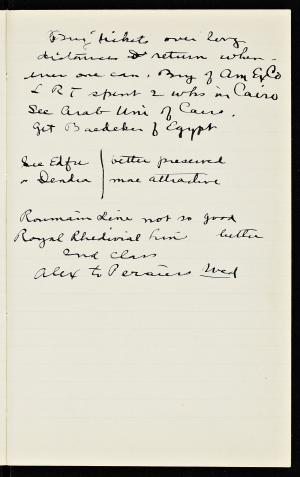 Buy tickets over long
distances & return when-
ever one can. Buy of Am Ex Co
L R T spent 2 wks in Cairo
See Arab Uni of Cairo.
Get Baedeker of Egypt
See Edfu | better preserved
" Dendra | more attractive
Roumain Line not so good
Royal Khedivial Line better
2nd class
Alex to Peraeus Wed